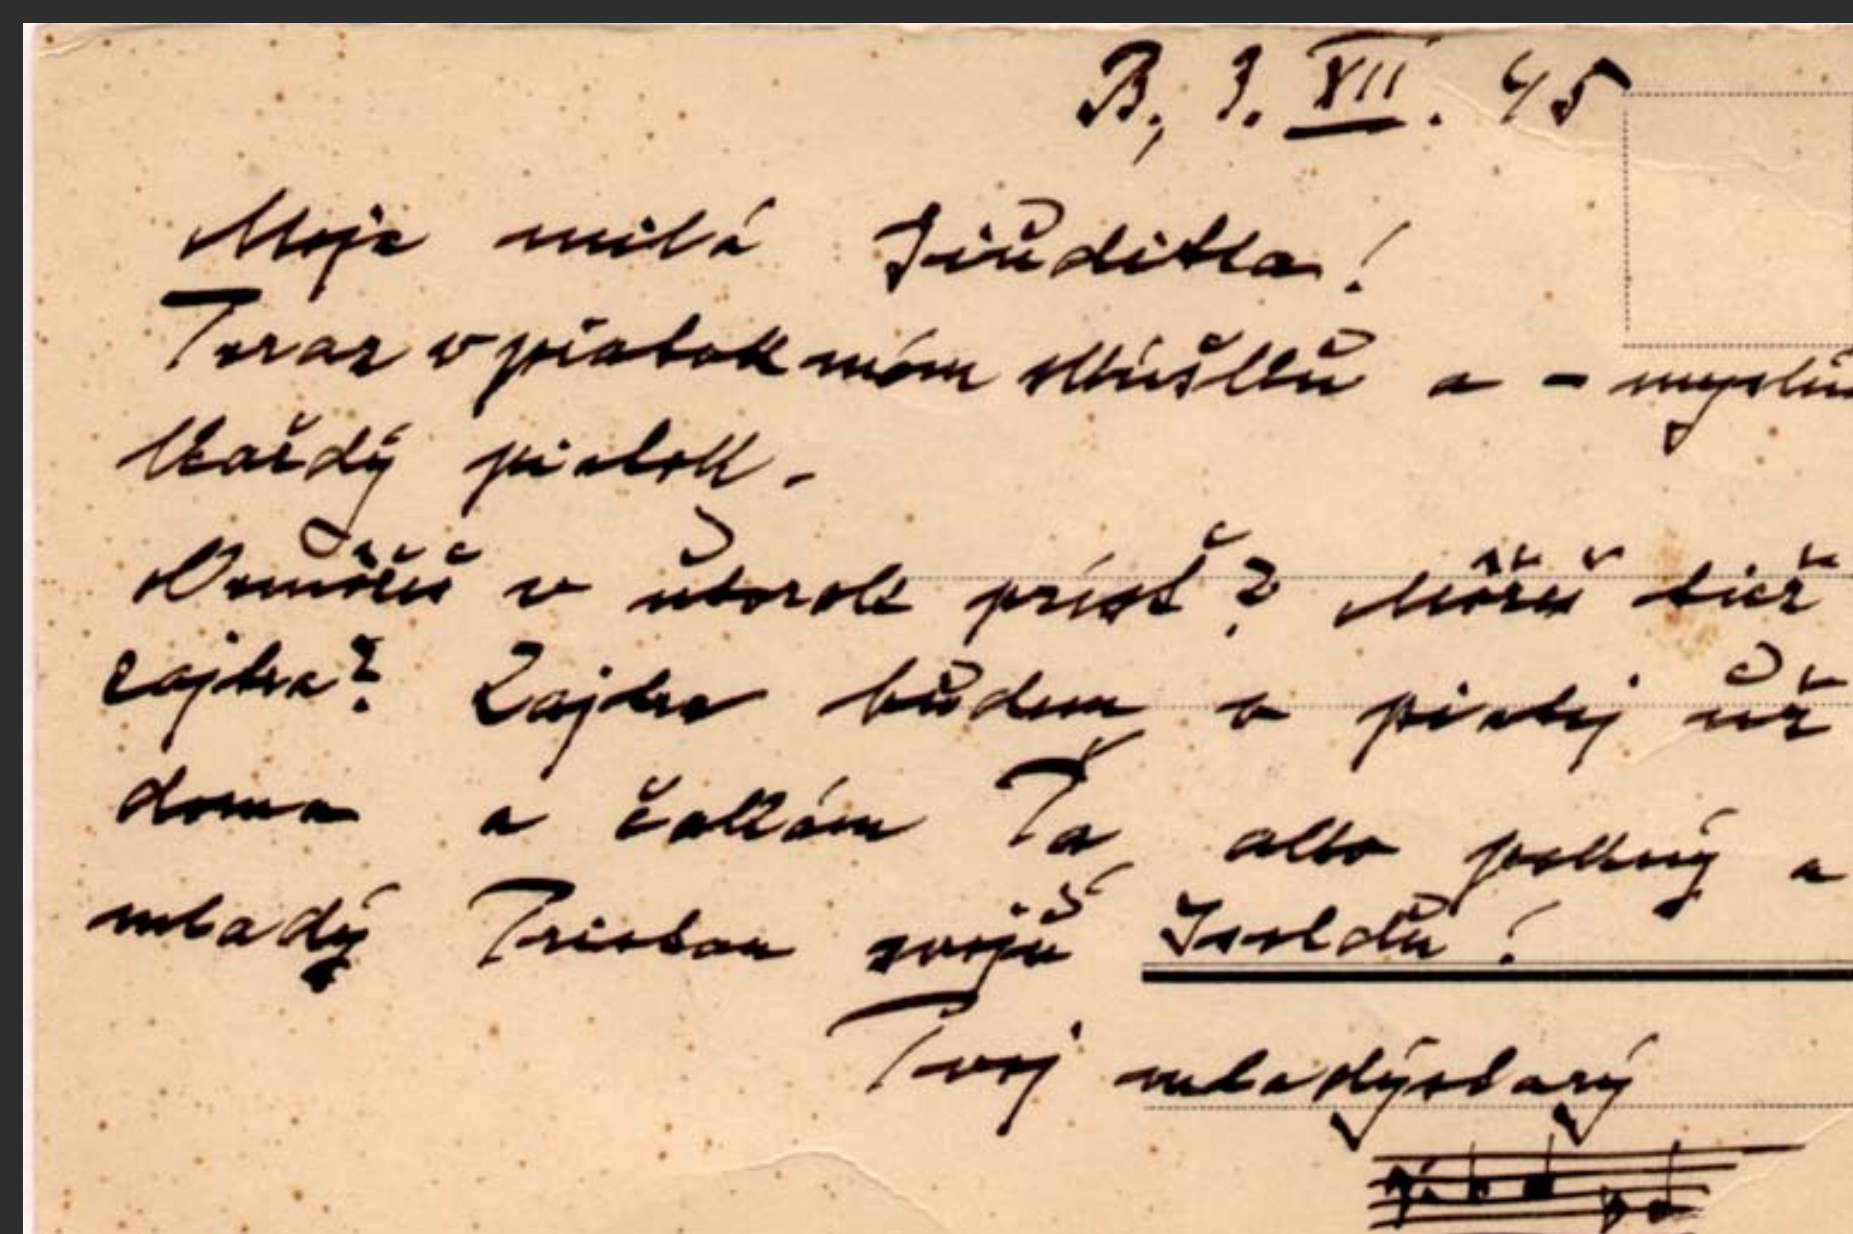 B., 3. XII. 45
Moja milá Jiuditka!
Teraz v piatok mám skúšku a – myslím
každý piatok.
Nemôžeš v útorok prísť? Môžeš tiež
zajtra? Zajtra budem v piatej už
doma a čakám Ťa ako pekný a
mladý Tristan svojú Isoldu!
Tvoj mladýstarý